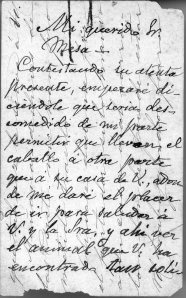 Mi querido Sr.
Mesa =
Contestando su atenta
presente, empezaré di-
ciéndole que seria des-
comedido de mi parte
permitir que lleven el
caballo á otra parte
que á su casa de V., adon-
de me daré el placer
de ir para saludar á
V. y la Sra. y ahi ver
el animal que V. ha
encontrado tan soli-